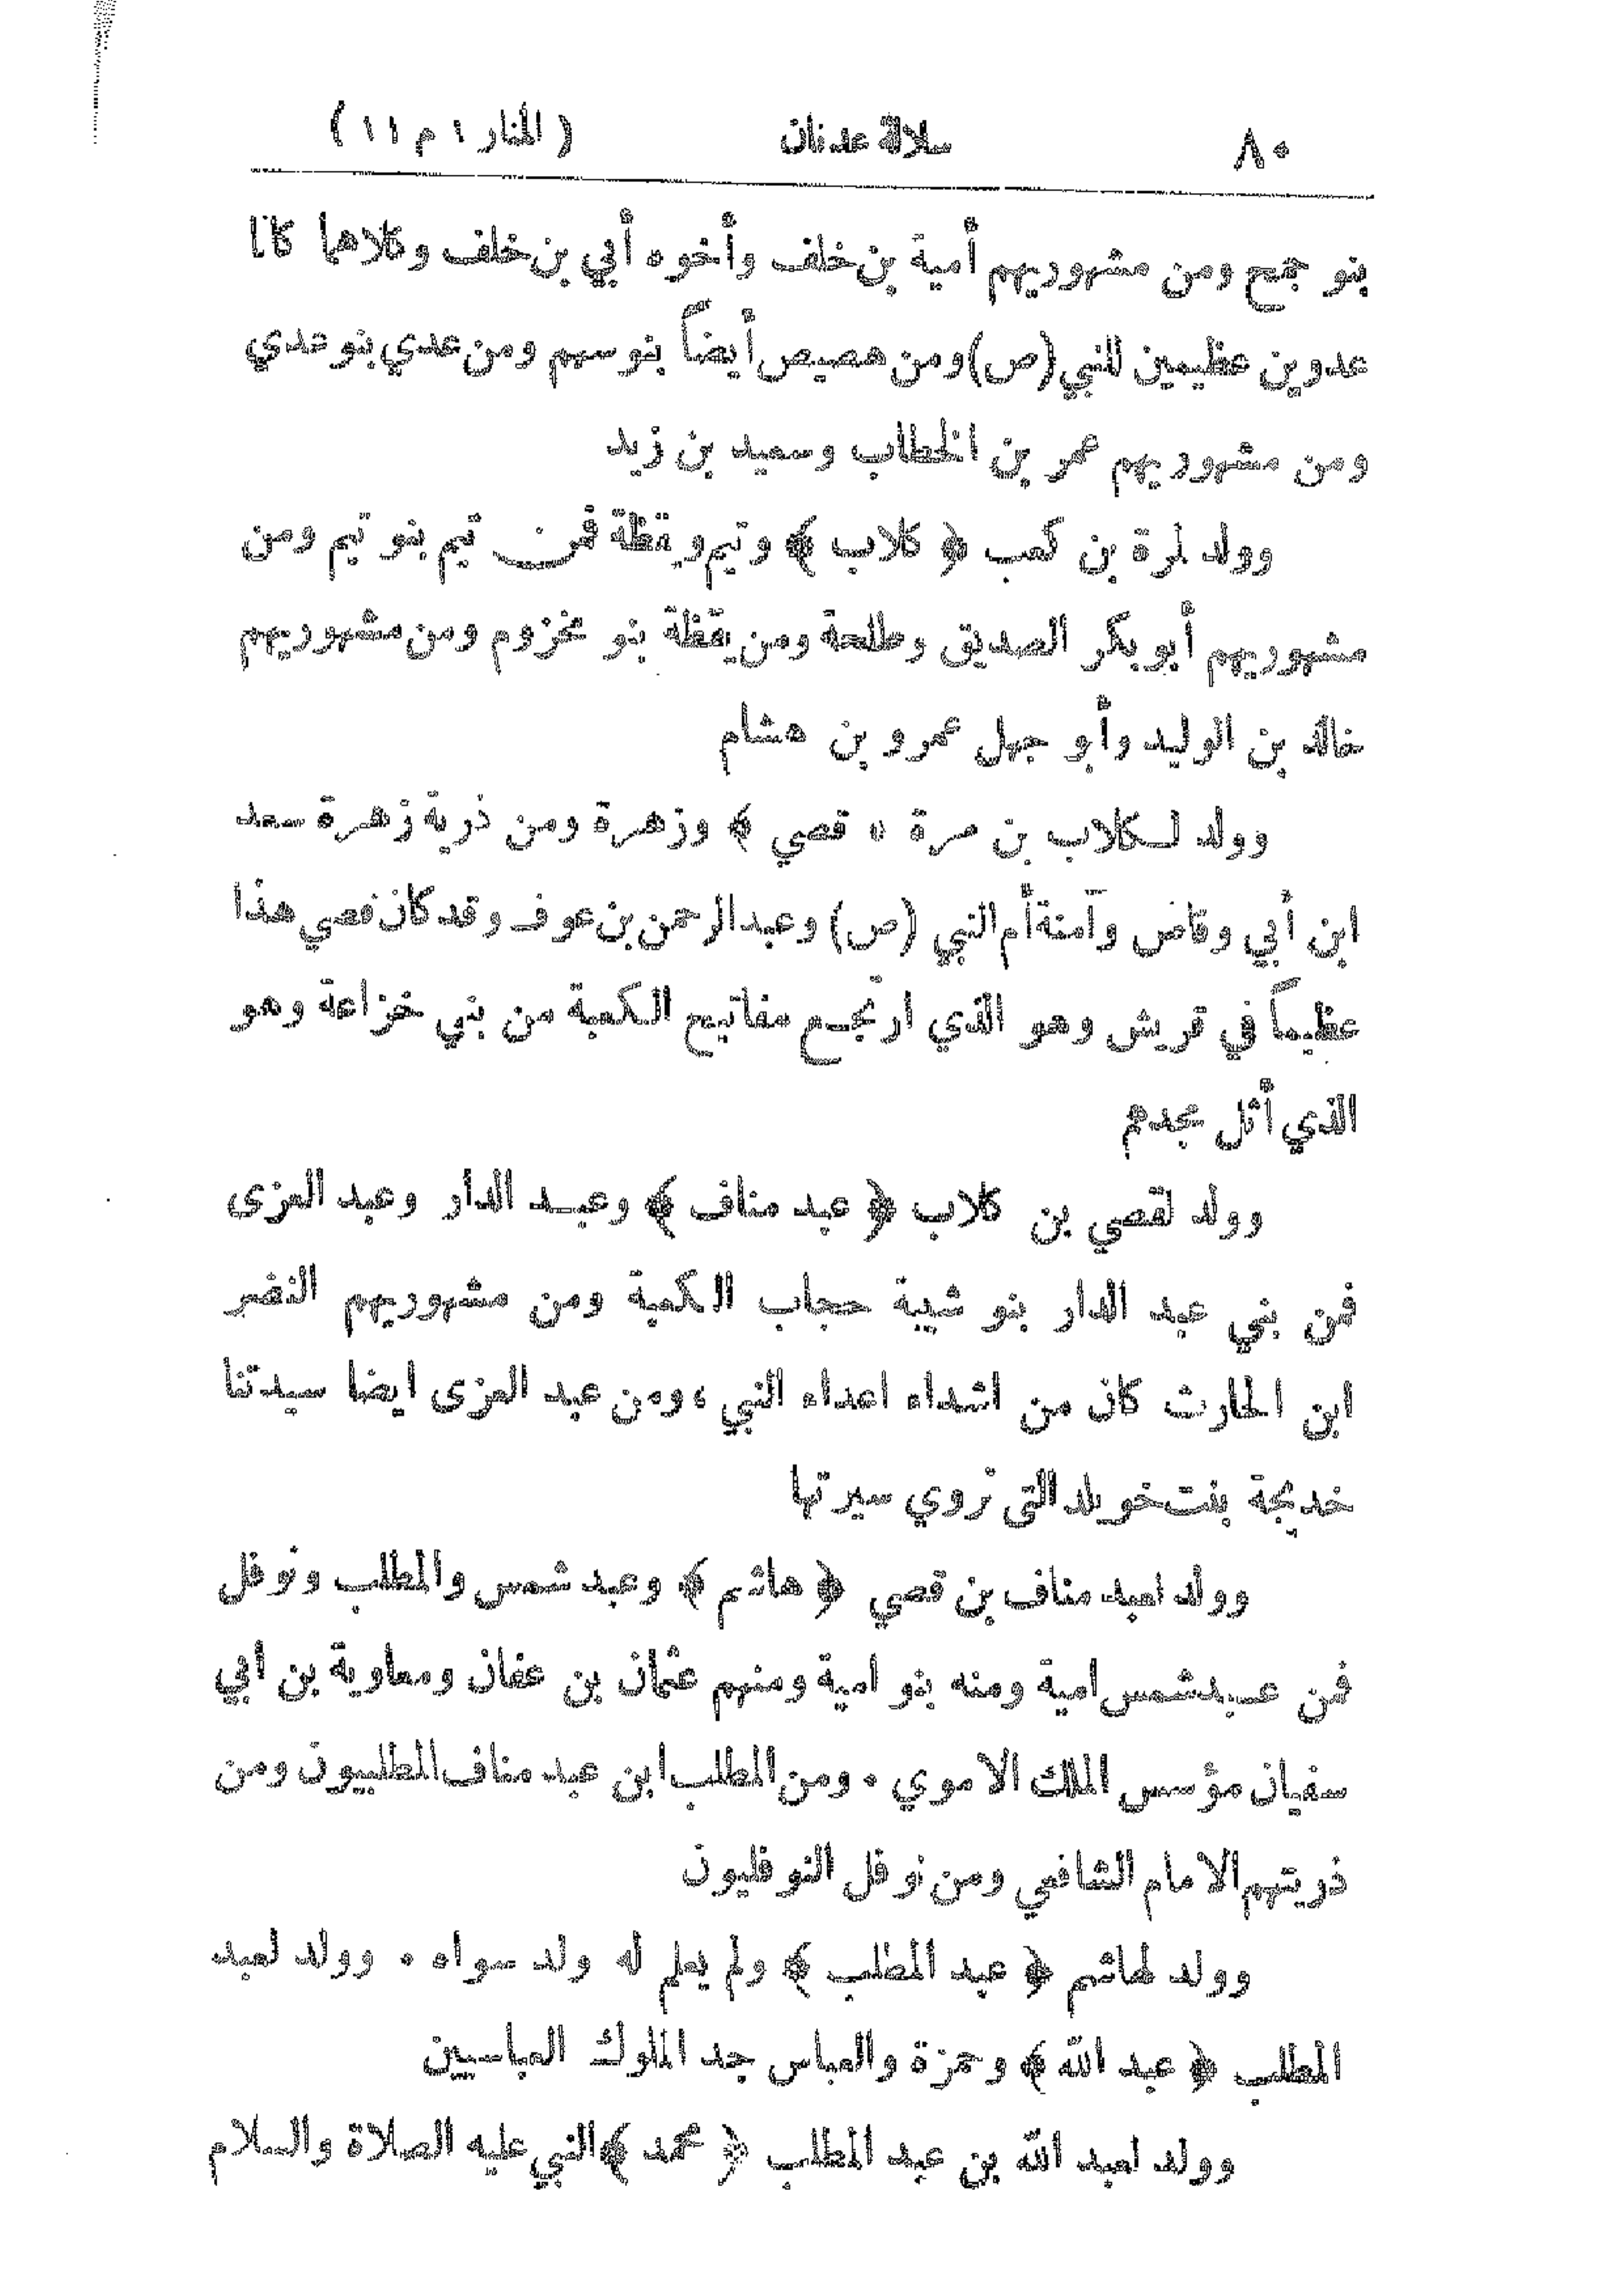 ٨٠ سلالة عدنان (المنار ١ م ١١)
بنو جمح ومن مشهوريهم أمية بن خلف وأخوه أبي بن خلف وكلاهما كانا
عدوين عظيمين للنبي (ص) ومن هصيص أيضاً بنو سهم ومن عدي بنو عدي
ومن مشهوريهم عمر بن الخطاب وسعيد بن زيد
وولد لمرة بن كعب ﴿ كلاب ﴾ وتيم ويقظة فمن تيم بنو تيم ومن
مشهوريهم أبو بكر الصديق وطلحة ومن يقظة بنو مخزوم ومن مشهوريهم
خالد بن الوليد وأبو جهل عمرو بن هشام
وولد لكلاب بن مرة « قصي ﴾ وزهرة ومن ذرية زهرة سعد
ابن أبي وقاص وآمنة أم النبي (ص) وعبد الرحمن بن عوف وقد كان قصي هذا
عظيماً في قريش وهو الذي ارتجع مفاتيح الكعبة من بني خزاعة وهو
الذي أثل مجدهم
وولد لقصي بن كلاب ﴿ عبد مناف ﴾ وعبد الدار وعبد العزى
فمن بني عبد الدار بنو شيبة حجاب الكعبة ومن مشهوريهم النضر
ابن الحارث كان من اشداء اعداء النبي ، ومن عبد العزى ايضا سيدتنا
خديجة بنت خويلد التي نروي سيرتها
وولد لعبد مناف بن قصي ﴿ هاشم ﴾ وعبد شمس والمطلب ونوفل
فمن عبد شمس امية ومنه بنو امية ومنهم عثمان بن عفان ومعاوية بن ابي
سفيان مؤسس الملك الاموي . ومن المطلب ابن عبد مناف المطلبيون ومن
ذريتهم الامام الشافعي ومن نوفل النوفليون
وولد لهاشم ﴿ عبد المطلب ﴾ ولم يعلم له ولد سواه . وولد لعبد
المطلب ﴿ عبد الله ﴾ وحمزة والعباس جد الملوك العباسيين
وولد لعبد الله بن عبد المطلب ﴿ محمد ﴾ النبي عليه الصلاة والسلام